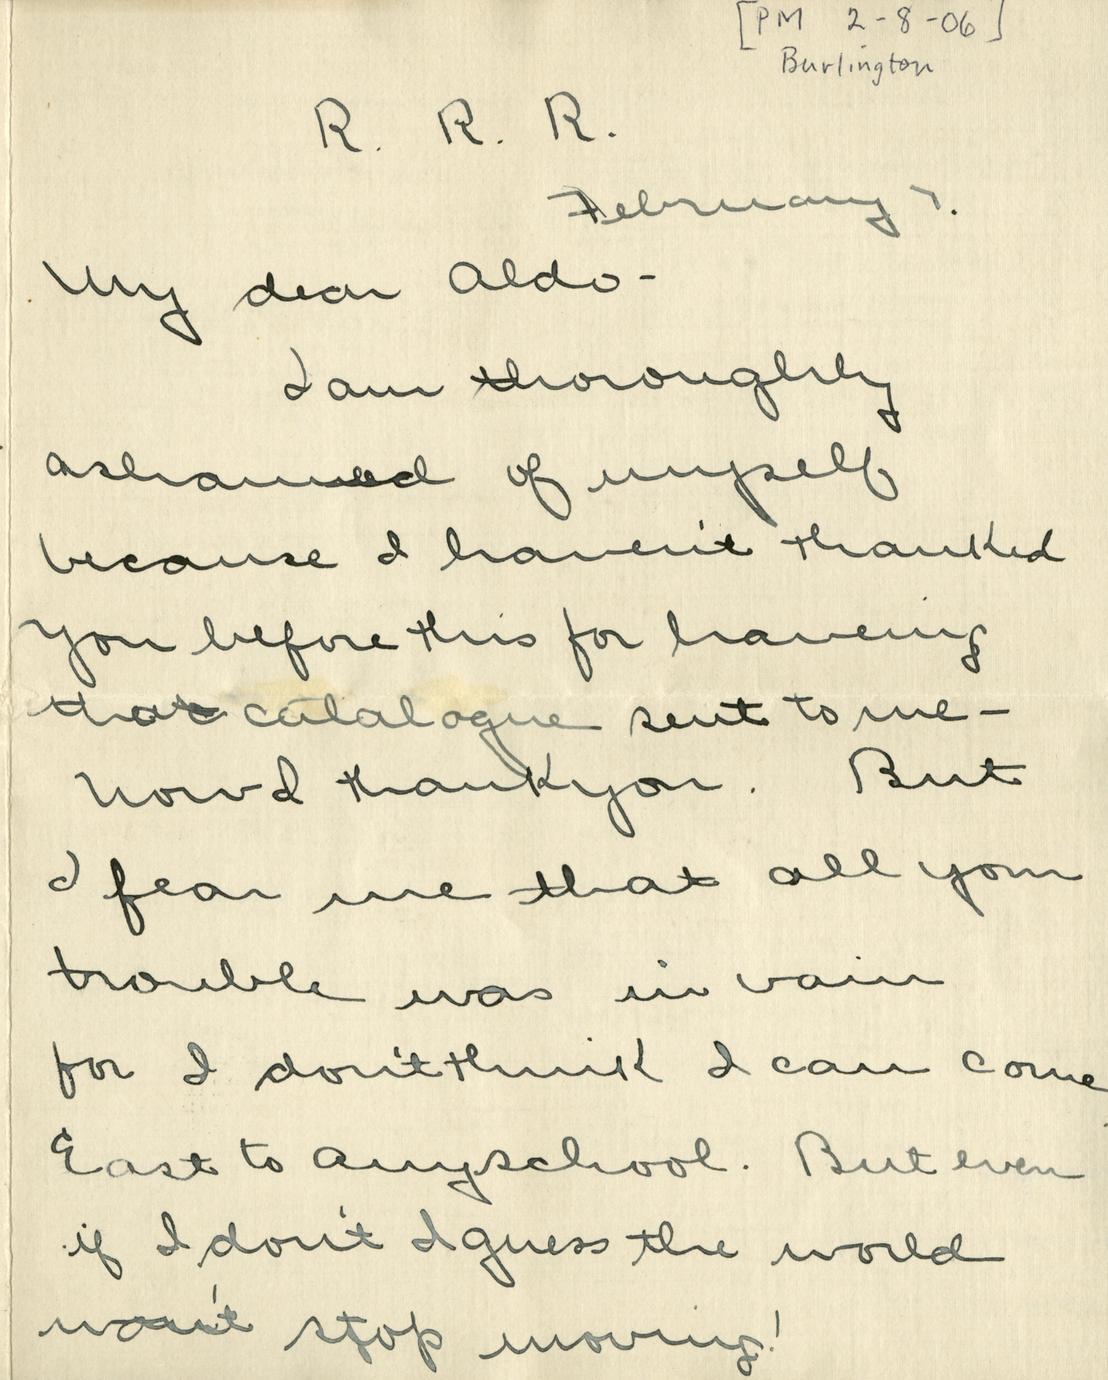 [PM 2-8-06]
Burlington
R. R. R.
February 7.
My dear Aldo-
I am thoroughly
ashamed of myself
because I haven't thanked
you before this for haveing
that catalogue sent to me-
now I thank you. But
I fear me that all your
trouble was in vain
for I don't think I can come
East to any school. But even
if I don't I guess the world
won't stop moving!